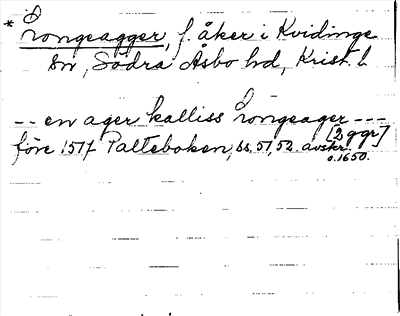 * Rongeagger, f. åker i Kvidinge
sn, Södra Åsbo hd, Krist. l.
-- en ager kalliss Rongeager ---
[2 ggr]
före 1517 Palteboken, ss. 51, 52. avskr.
o. 1650.